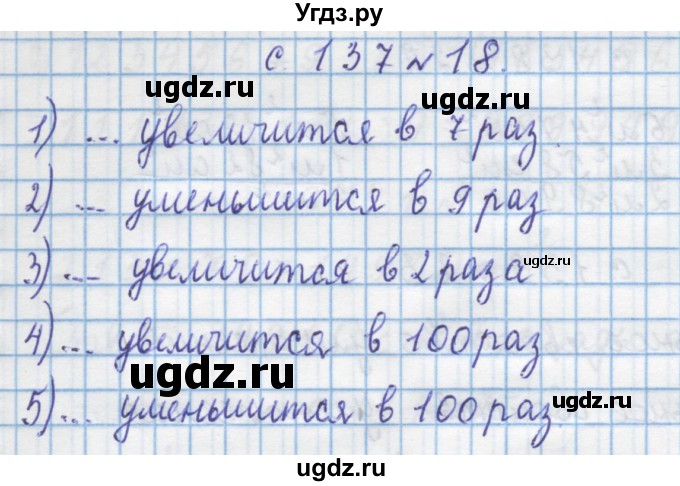 Угдз.ру
с. 137 № 18.
ugdz.ru ugdz.ru
1) ... увеличится в 7 раз
2) ... уменьшится в 9 раз
ugdz.ru
ugdz.ru
3) ... увеличится в 2 раза
4) ... увеличится в 100 раз
ugdz.ru
ugdz.ru
5) ... уменьшится в 100 раз
ugdz.ru